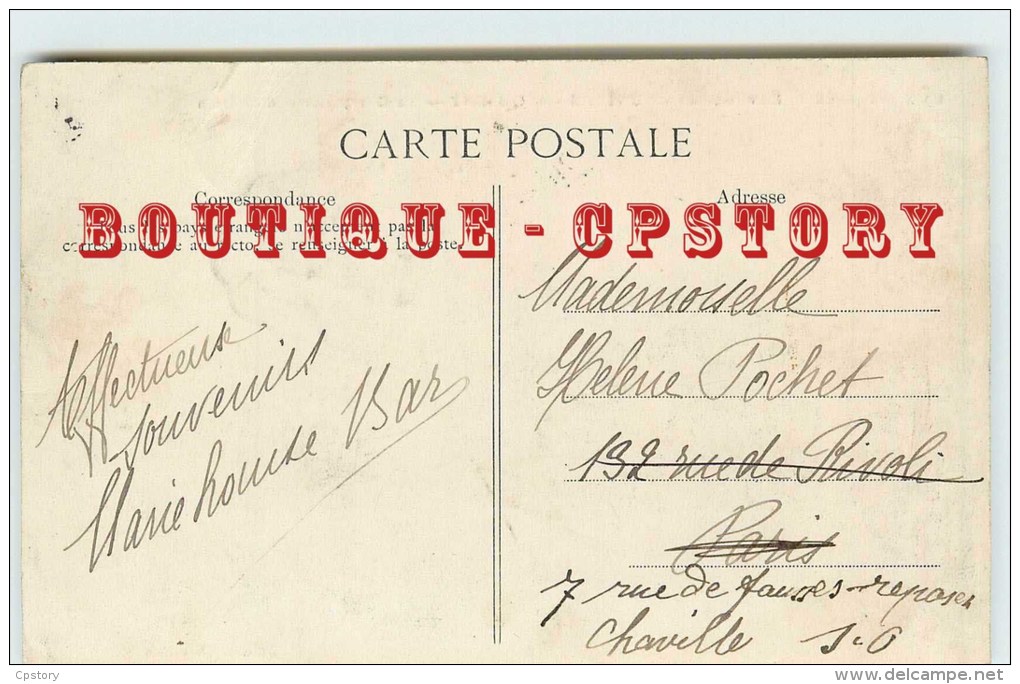 CARTE POSTALE
Correspondance
Tous les pays étrangers n'acceptent pas la
correspondance au recto, se renseigner à la poste.
BOUTIQUE - CPSTORY
Affectueux
souvenirs
Marie Louise Bar
Adresse
Mademoiselle
Helene Pochet
192 rue de Rivoli
Paris
7 rue de fausses-reposes
Chaville S-O
Cpstory
delcampe.net